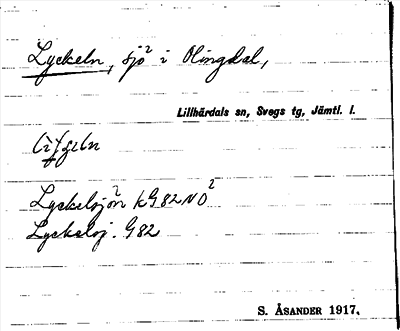 Lyckeln, sjö² i Olingdal,
Lillhärdals sn, Svegs tg, Jämtl. l.
Lyckelsjön kG82NO²
Lyckelsj. G82
S. ÅSANDER 1917.